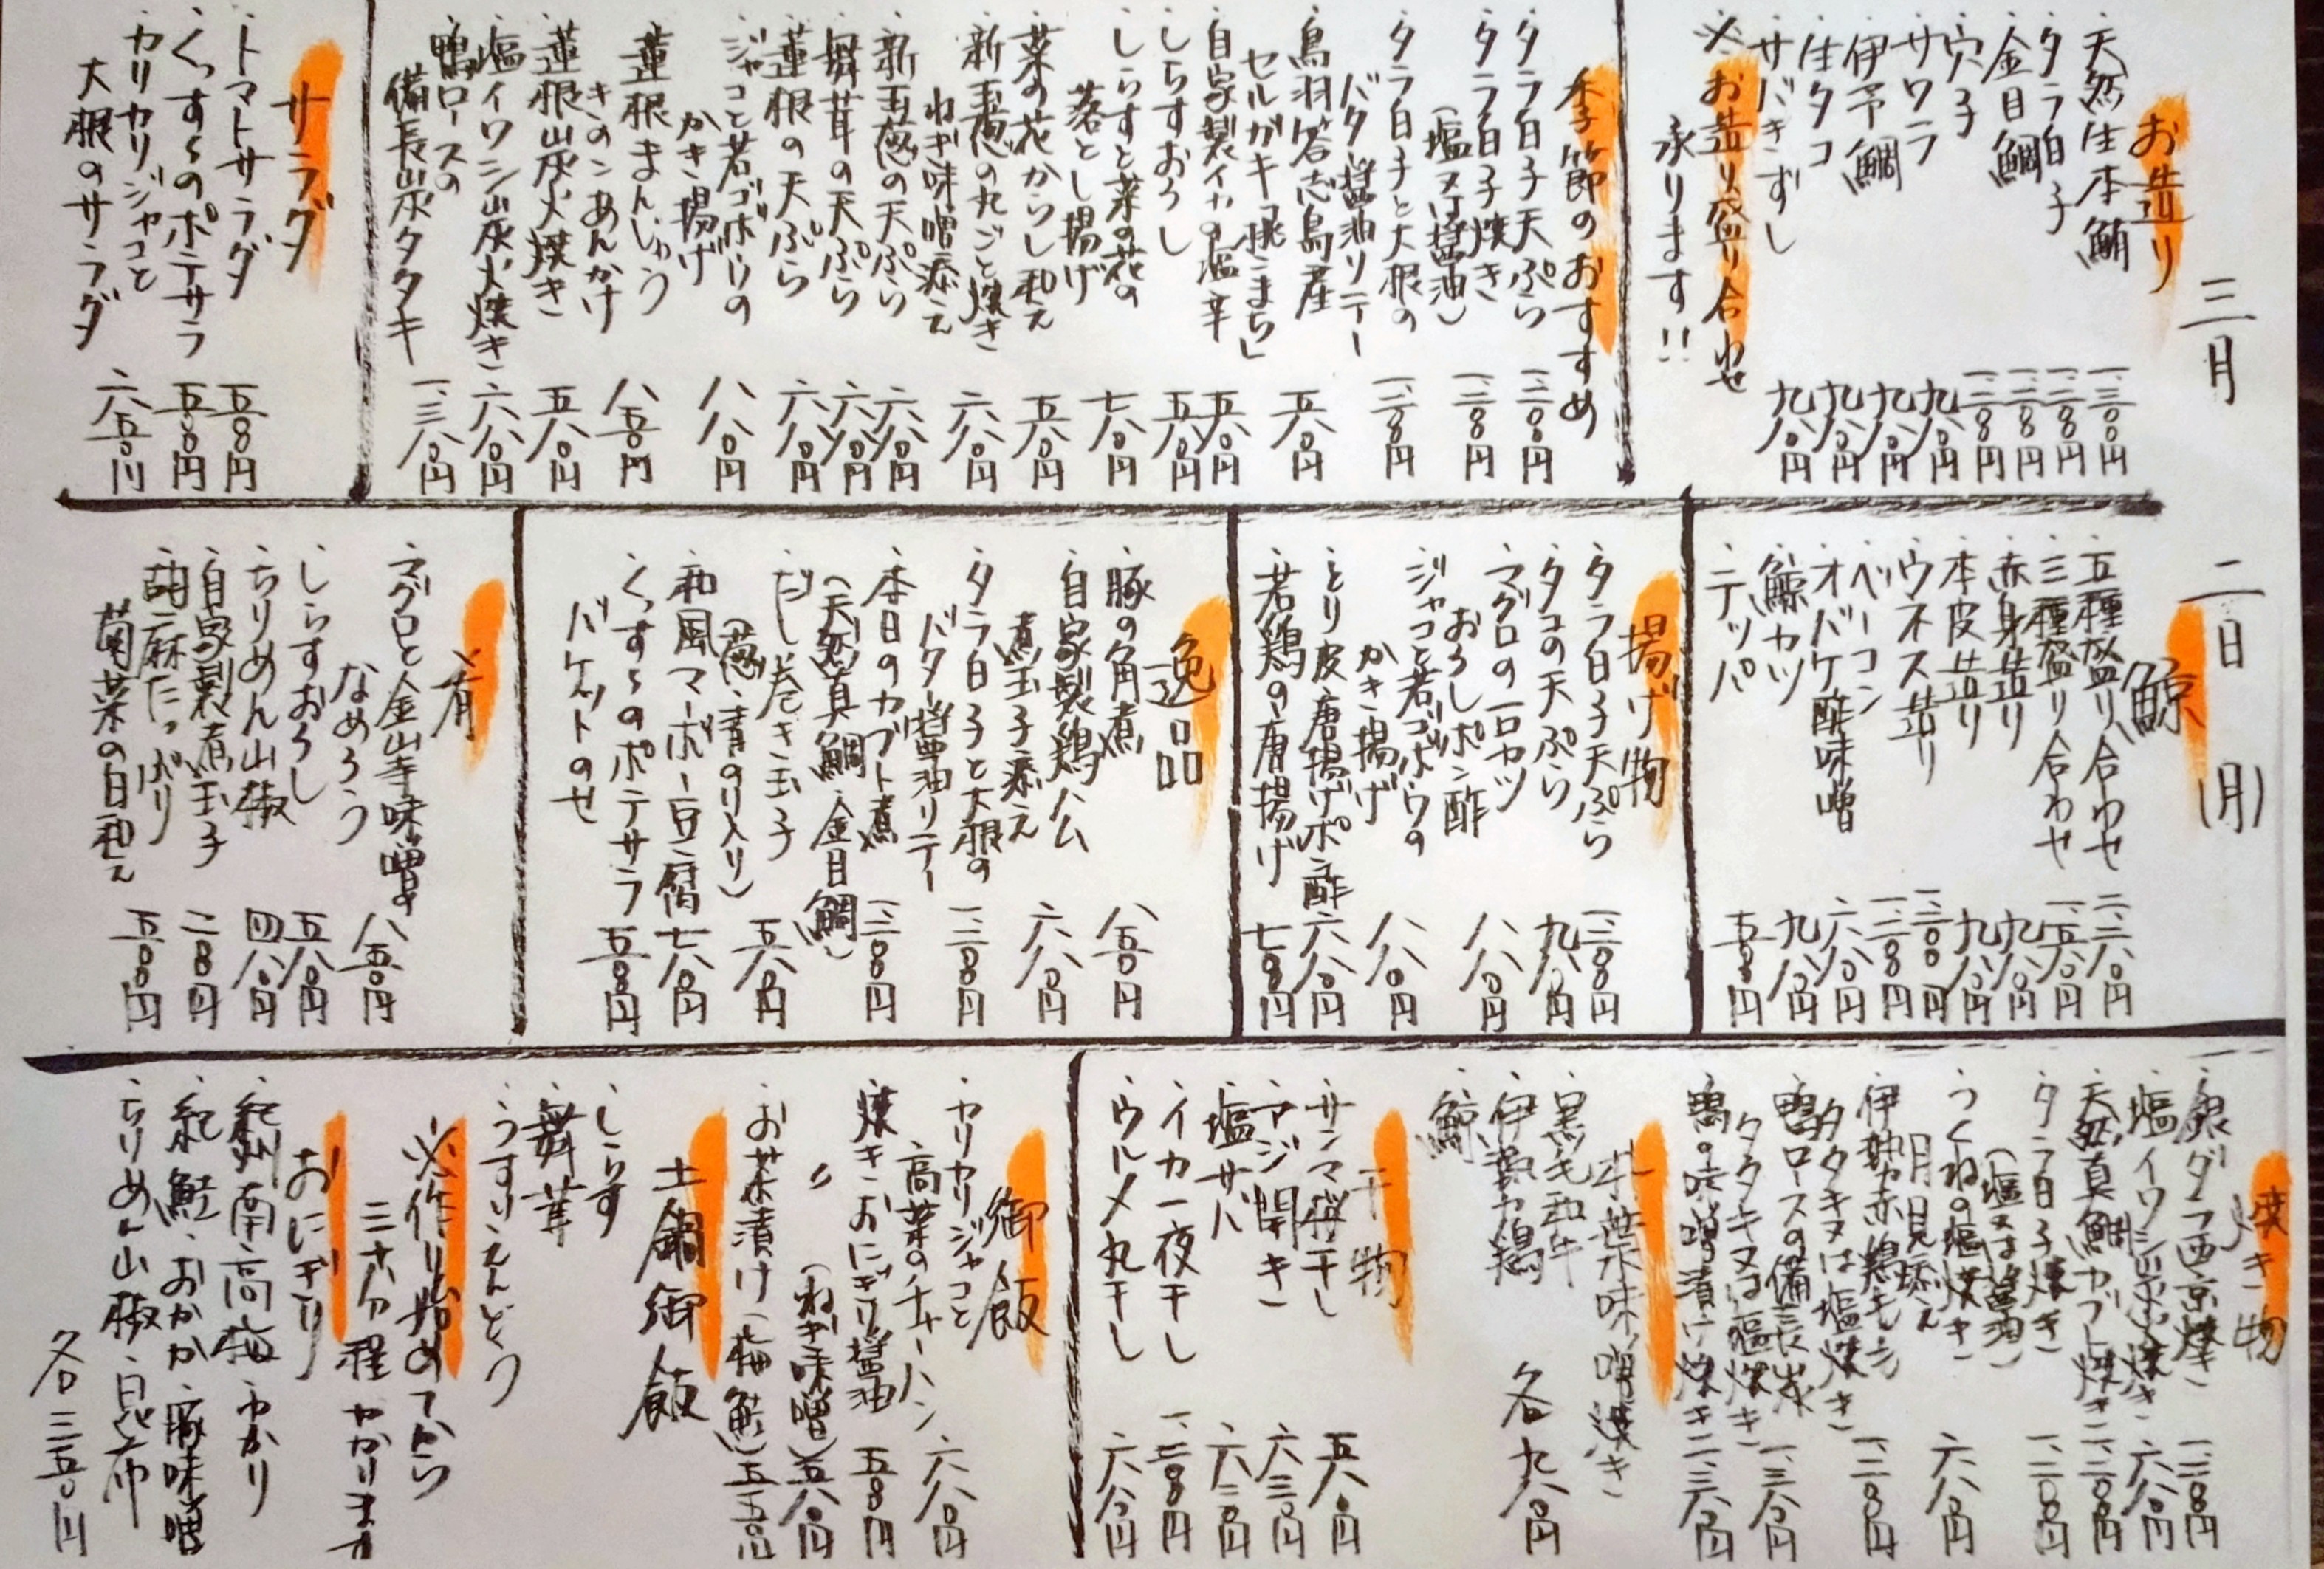 三月 二日 (月)
お造り
・天然生本鮪 一、三〇〇円
・タラ白子 一、二〇〇円
・金目鯛 一、二〇〇円
・穴子 一、二〇〇円
・サワラ 九八〇円
・伊予鯛 九八〇円
・生タコ 九八〇円
・サバきずし 九八〇円
※お造り盛り合わせ
承ります!!
季節のおすすめ
・タラ白子天ぷら 一、二〇〇円
・タラ白子焼き
(塩又は醤油) 一、二〇〇円
・タラ白子と大根の
バター醤油ソテー 一、二〇〇円
・鳥羽答志島産
セルガキ「桃こまち」 五八〇円
・自家製イカの塩辛 五八〇円
・しらすおろし 五八〇円
・しらすと菜の花の
落とし揚げ 七八〇円
・菜の花からし和え 五八〇円
・新玉葱の丸ごと焼き
ねぎ味噌添え 六八〇円
・新玉葱の天ぷら 六八〇円
・舞茸の天ぷら 六八〇円
・蓮根の天ぷら 六八〇円
・ジャコと若ゴボウの
かき揚げ 八八〇円
・蓮根まんじゅう
きのこあんかけ 八五〇円
・蓮根炭火焼き 五八〇円
・塩イワシ炭火焼き 六八〇円
・鴨ロースの
備長炭タタキ 一、三八〇円
サラダ
・トマトサラダ 五〇〇円
・くっすぅのポテサラ 五〇〇円
・カリカリジャコと
大根のサラダ 六五〇円
鯨
・五種盛り合わせ 二、二八〇円
・三種盛り合わせ 一、五八〇円
・赤身造り 九八〇円
・本皮造り 九八〇円
・ウネス造り 一、二〇〇円
・ベーコン 一、二〇〇円
・オバケ酢味噌 六八〇円
・鯨カツ 九八〇円
・テッパ 七〇〇円
揚げ物
・タラ白子天ぷら 一、二〇〇円
・タコの天ぷら 九八〇円
・マグロの一口カツ
おろしポン酢 八八〇円
・ジャコと若ゴボウの
かき揚げ 八八〇円
・とり皮唐揚げポン酢 六八〇円
・若鶏の唐揚げ 七〇〇円
逸品
・豚の角煮 八五〇円
・自家製鶏ハム
煮玉子添え 六八〇円
・タラ白子と大根の
バター醤油ソテー 一、二〇〇円
・本日のカブト煮
(天然真鯛・金目鯛) 一、二〇〇円
・だし巻き玉子
(葱・青のり入り) 五八〇円
・和風マーボー豆腐 七八〇円
・くっすぅのポテサラ
バケットのせ 五〇〇円
肴
・マグロと金山寺味噌の
なめろう 八五〇円
・しらすおろし 五八〇円
・ちりめん山椒 四八〇円
・自家製煮玉子 二〇〇円
・胡麻たっぷり
菊菜の白和え 五〇〇円
焼き物
・銀ダラ西京焼き 一、二〇〇円
・塩イワシ炭火焼き 六八〇円
・天然真鯛カブト焼き 一、二〇〇円
・タラ白子焼き
(塩又は醤油) 一、二〇〇円
・つくねの塩焼き
月見添え 六八〇円
・伊勢赤鶏もも
タタキ又は塩焼き 一、二〇〇円
・鴨ロースの備長炭
タタキ又は塩焼き 一、三八〇円
・鴨の味噌漬け焼き 一、三八〇円
朴葉味噌焼き
・黒毛和牛
・伊勢赤鶏 各九八〇円
・鯨
干物
・サンマ丸干し 五八〇円
・アジ開き 六三〇円
・塩サバ 六三〇円
・イカ一夜干し 一、二〇〇円
・ウルメ丸干し 六八〇円
御飯
・カリカリジャコと
高菜のチャーハン 六八〇円
・焼きおにぎり 醤油 五〇〇円
・〃 (ねぎ味噌) 五八〇円
・お茶漬け(梅・鮭) 五五〇円
土鍋御飯
・しらす
・舞茸
・うすいえんどう
※作り始めてから
三十分程かかります
おにぎり
・紀州南高梅・ゆかり
・紅鮭・おかか・豚味噌
・ちりめん山椒・昆布
各三五〇円